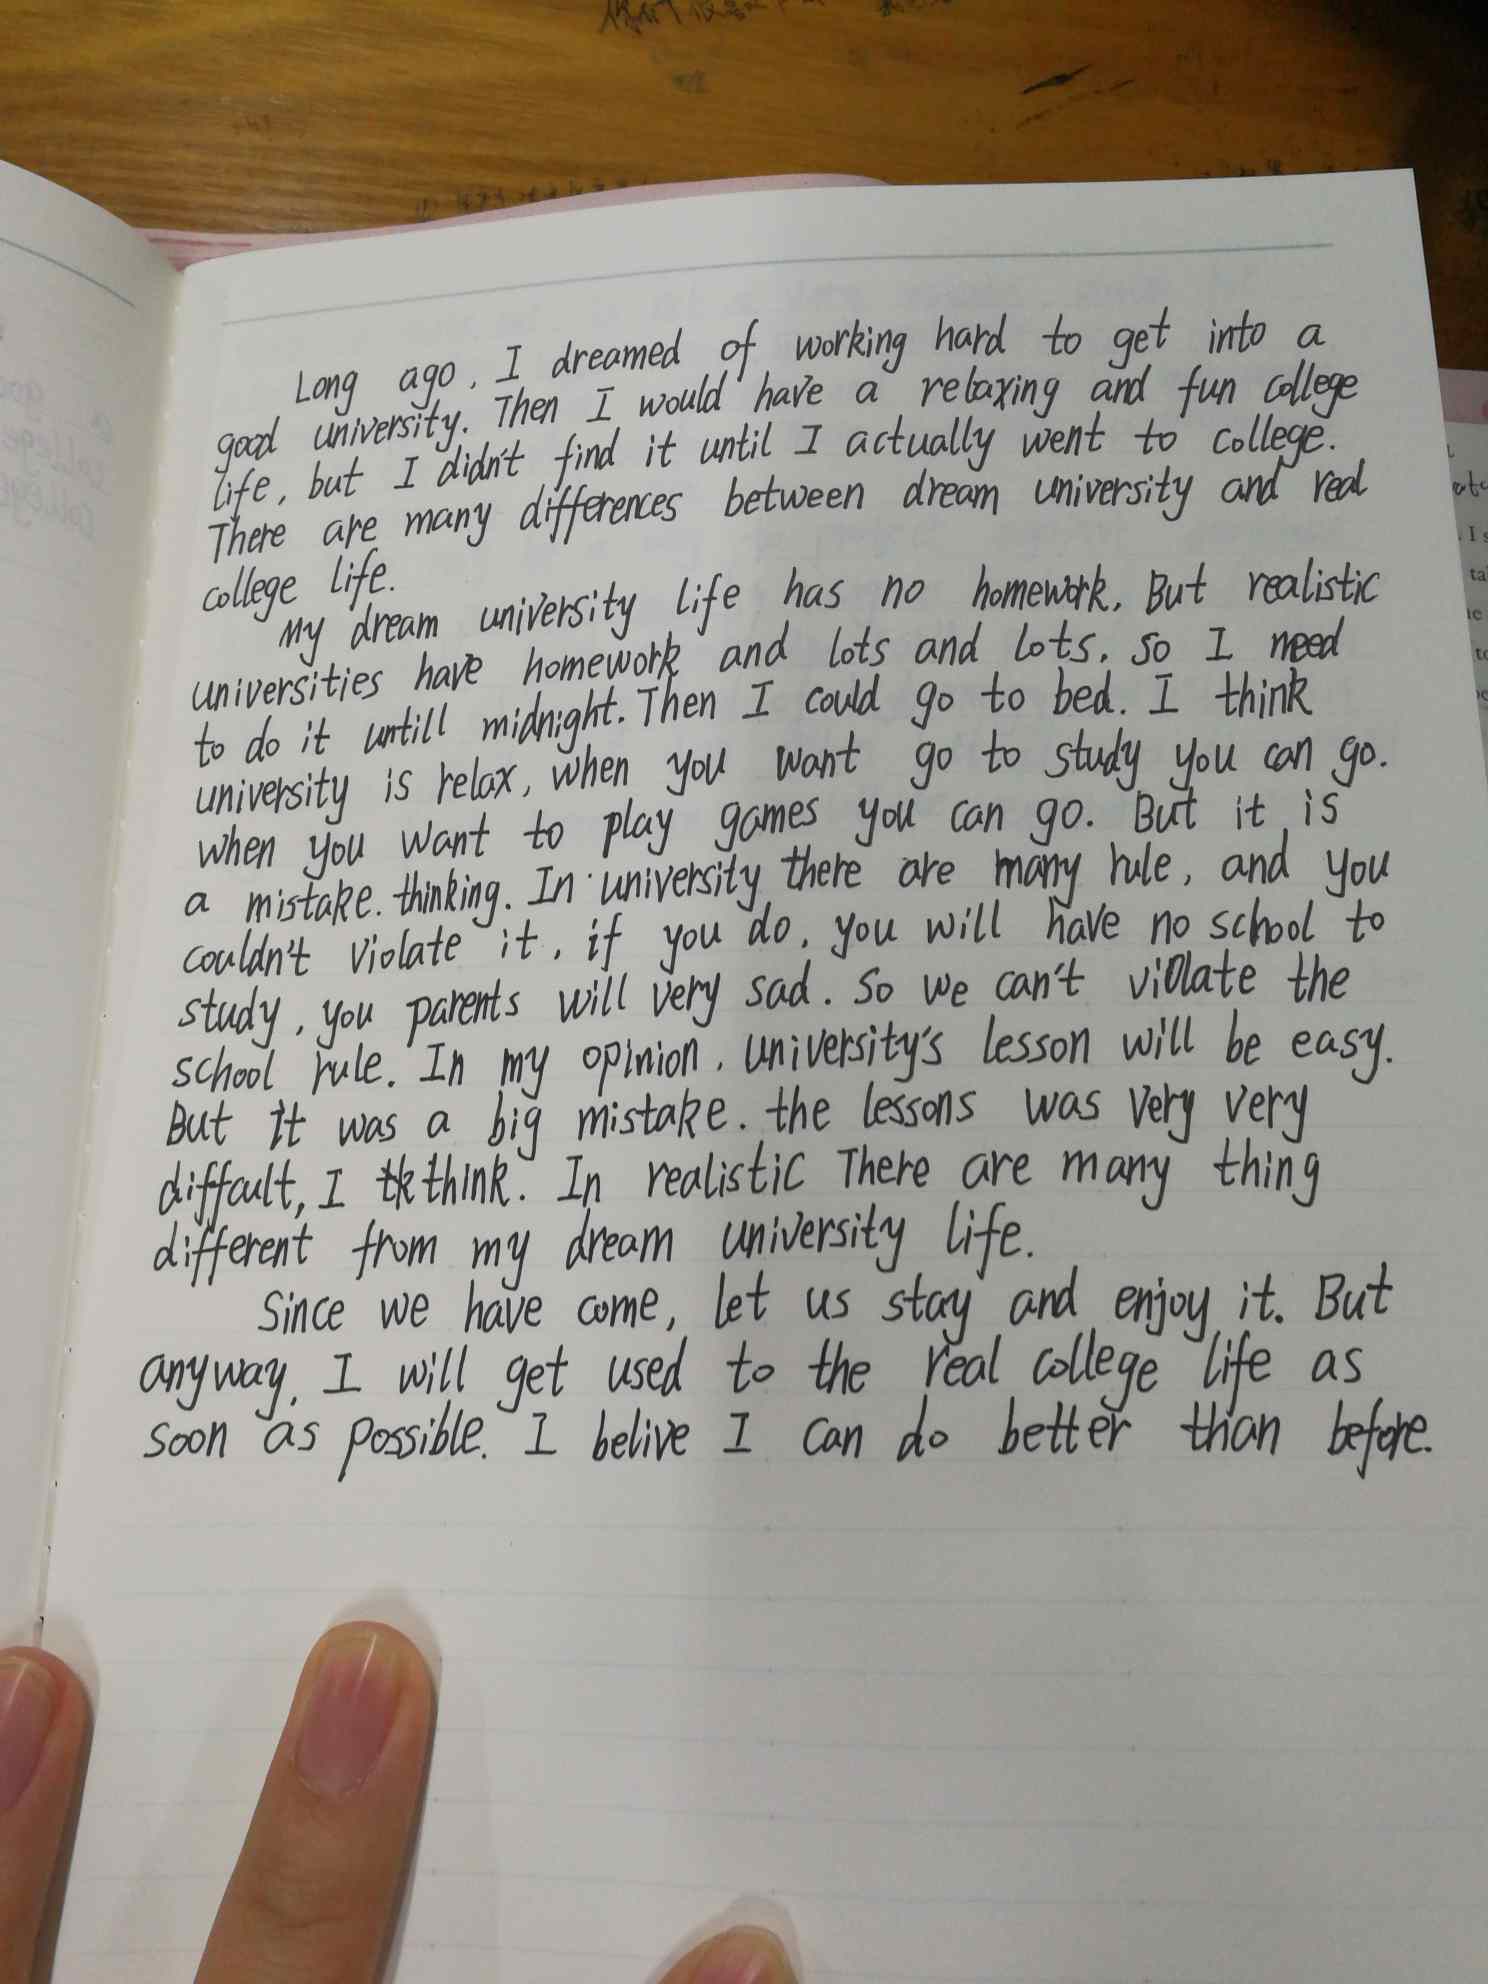 Long ago, I dreamed of working hard to get into a
good university. Then I would have a relaxing and fun college
life, but I didn't find it until I actually went to college.
There are many differences between dream university and real
college life.
My dream university life has no homework. But realistic
universities have homework and lots and lots. so I need
to do it untill midnight. Then I could go to bed. I think
university is relax, when you want go to study you can go.
when you want to play games you can go. But it is
a mistake. thinking. In university there are many rule, and you
couldn't violate it, if you do, you will have no school to
study, you parents will very sad. So we can't violate the
school rule. In my opinion, university's lesson will be easy.
But it was a big mistake. the lessons was very very
diffcult, I think. In realistic There are many thing
different from my dream university life.
Since we have come, let us stay and enjoy it. But
anyway, I will get used to the real college life as
soon as possible. I belive I can do better than before.